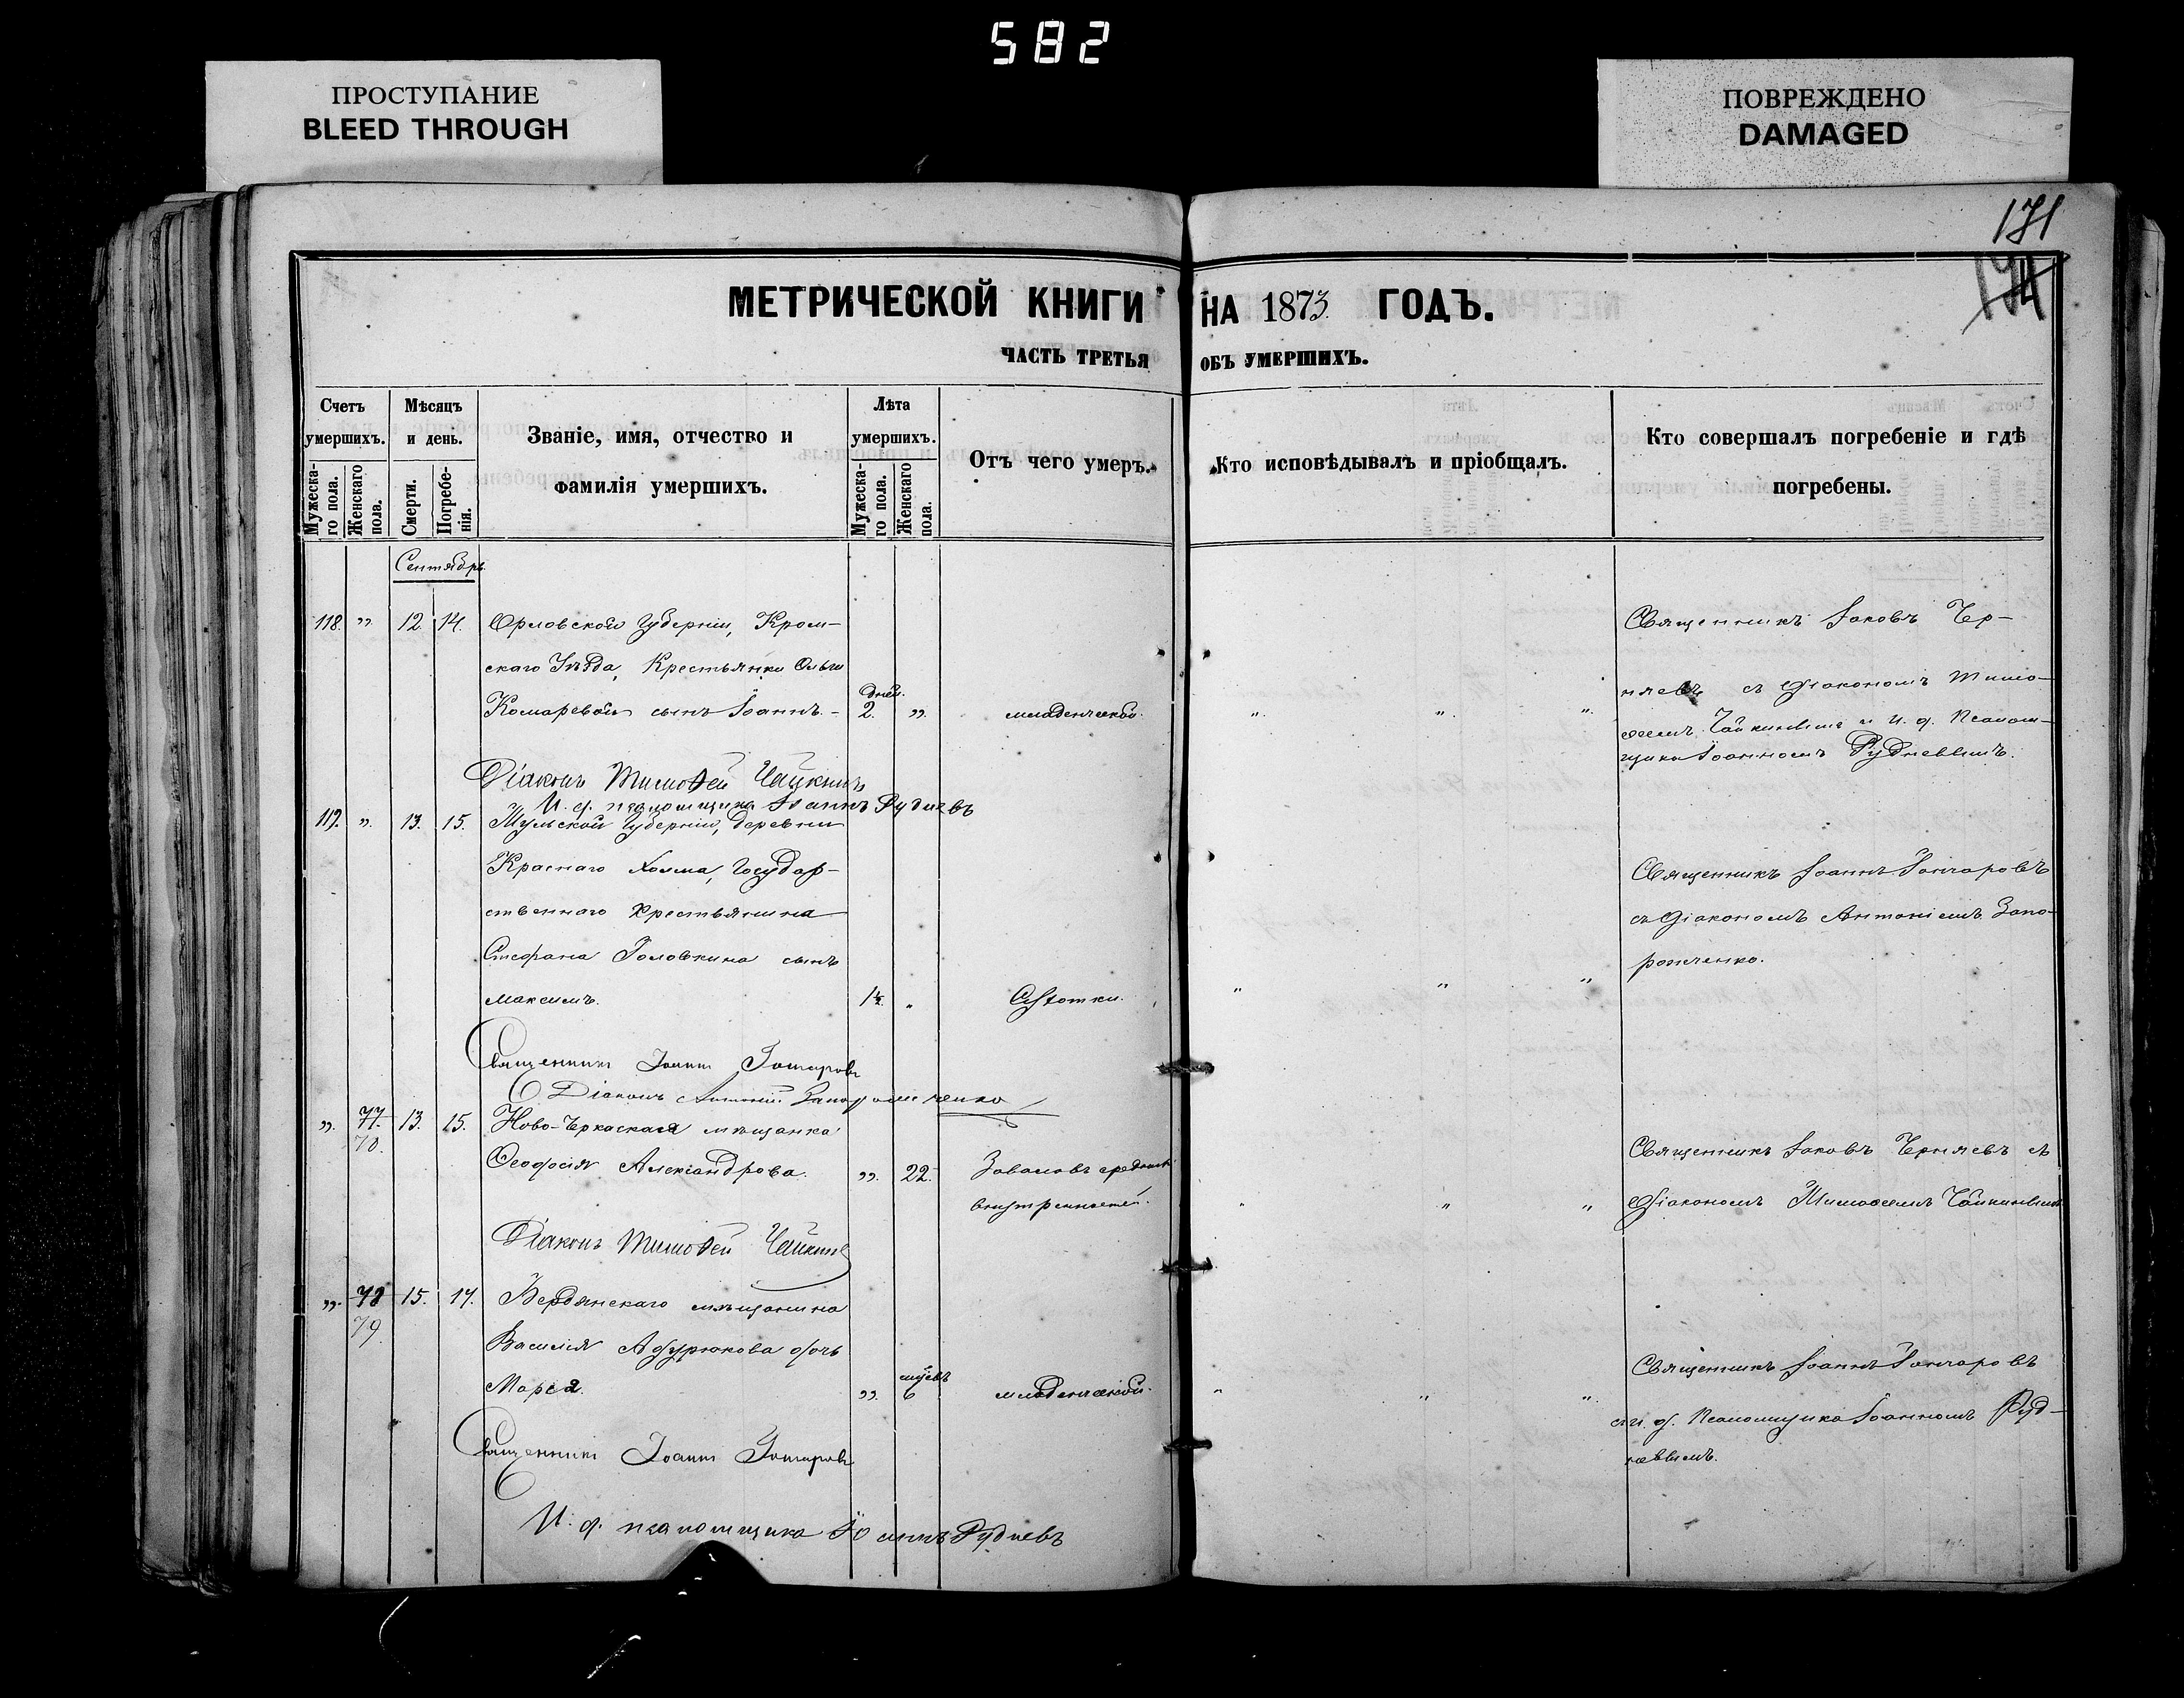 582
ПРОСТУПАНИЕ
BLEED THROUGH
ПОВРЕЖДЕНО
DAMAGED
171
174
МЕТРИЧЕСКОЙ КНИГИ НА 1873 ГОДЪ.
ЧАСТЬ ТРЕТЬЯ ОБЪ УМЕРШИХЪ.
Счетъ умершихъ.
Мужескаго пола.
Женскаго пола.
Мѣсяцъ и день.
Смерти.
Погребенія.
Званіе, имя, отчество и фамилія умершихъ.
Лѣта умершихъ.
Мужескаго пола.
Женскаго пола.
Отъ чего умеръ.
Кто исповѣдывалъ и пріобщалъ.
Кто совершалъ погребеніе и гдѣ погребены.
Сентябрь.
118. „ 12. 14. Орловской Губерніи, Кром-
скаго Уѣзда, Крестьянки Ольги
Комаревой сынъ Іоаннъ. - 2. дней. „ младенческой. „ „ „
Священникъ Іаковъ Чер-
няевъ съ Діакономъ Тимо-
ѳеемъ Чайкинымъ и И. д. Псалом-
щика Іоанномъ Рудневымъ.
Діаконъ Тимоѳей Чайкинъ
И. д. псаломщика Іоаннъ Рудневъ
119. „ 13. 15. Тульской Губерніи, деревни
Краснаго Холма, Государ-
ственнаго Крестьянина
Стефана Головкина сынъ
Максимъ. 1½ „ Сухотки. „ „ „
Священникъ Іоаннъ Гончаровъ
съ Діакономъ Антоніемъ Запо-
рожченко.
Священникъ Іоаннъ Гончаровъ
Діаконъ Антоній Запорожченко
„ 77. 78. 13. 15. Ново-Черкаская мѣщанка
Ѳеодосія Александрова. „ 22. Заваловъ
внутренностей. „ „ „
Священникъ Іаковъ Черняевъ съ
Діакономъ Тимоѳеемъ Чайкинымъ
Діаконъ Тимоѳей Чайкинъ
„ 78 79. 15. 17. Бердянскаго мѣщанина
Василія дочь
Марѳа. „ 6 младенческой. „ „ „
Священникъ Іоаннъ Гончаровъ
съ и. д. Псаломщика Іоанномъ Руд-
невымъ.
Священникъ Іоаннъ Гончаровъ
И. д. псаломщика Іоаннъ Рудневъ